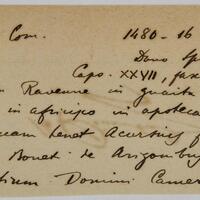 Com. 1480-16
Dono Sp
Capo. XXVII, fase
Ravenne in guaita
in africijo in apotecha
uam tenet Acursius f
Bonet. de Arigonibus
tium Domini Camer